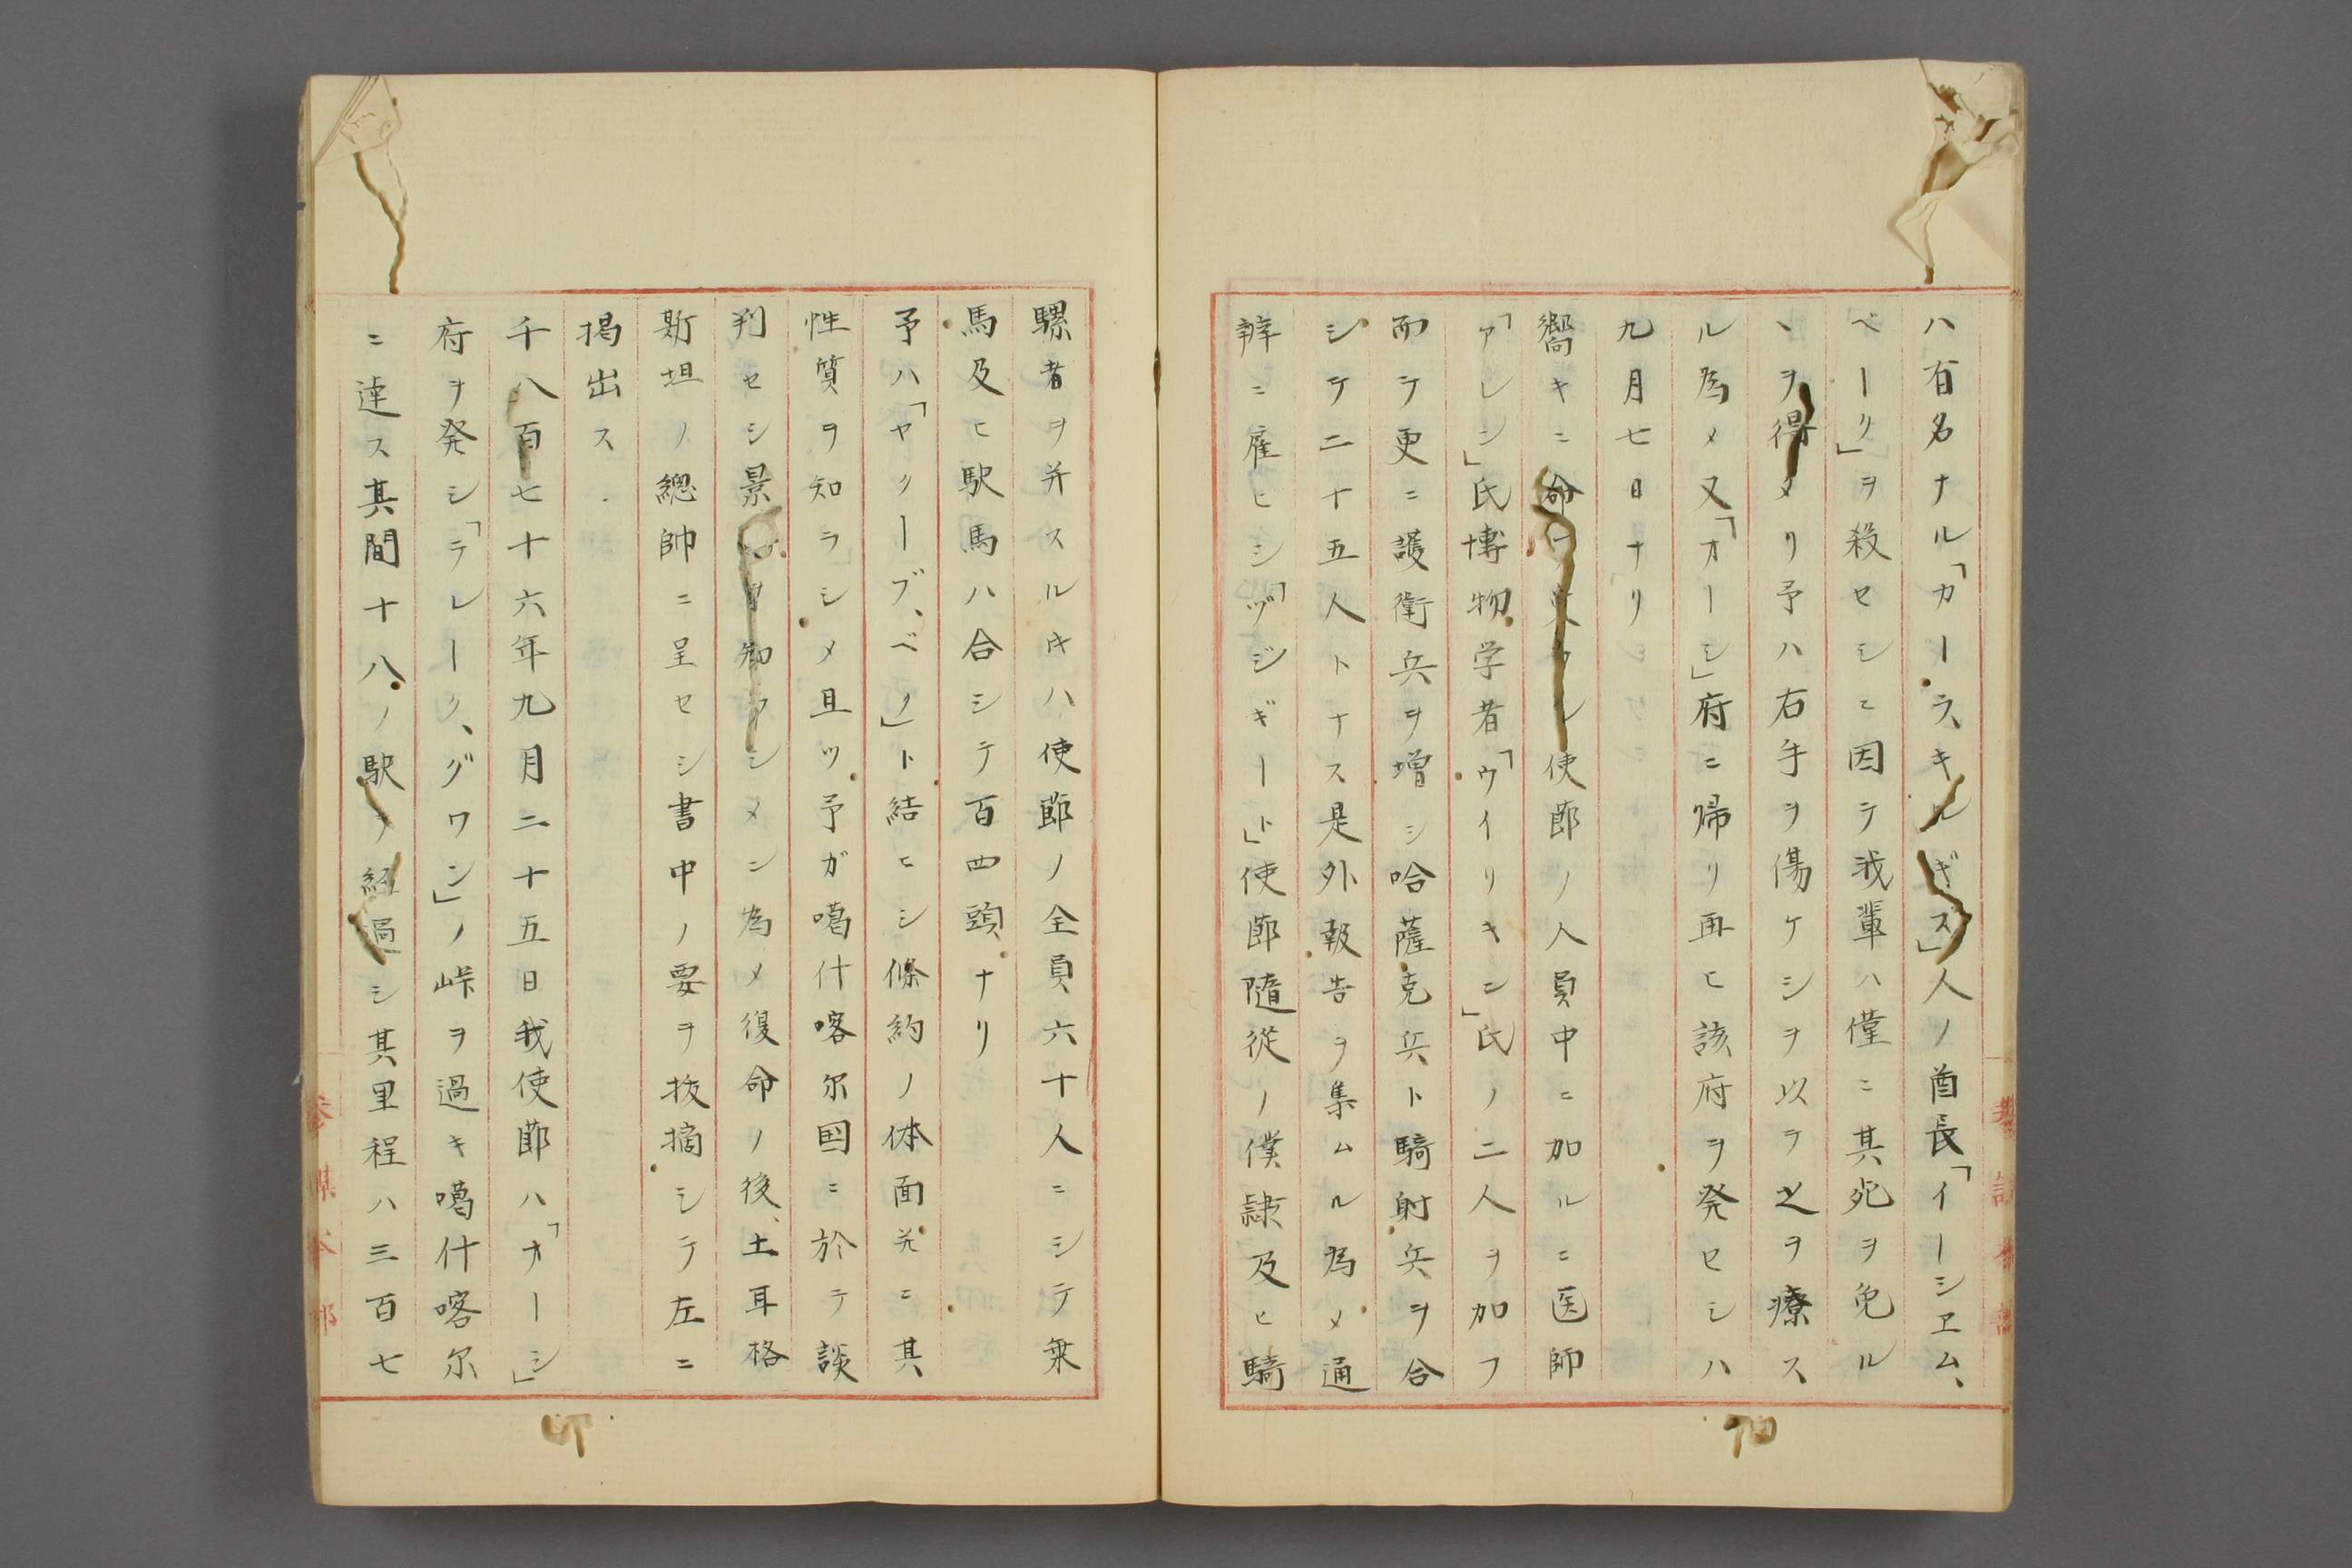 ハ有名ナル「カーラ、キルギス」人ノ酋長「イーシエム、
ベーク」ヲ殺セシニ因テ我輩ハ僅ニ其死ヲ免ル
ヽヲ得タリ予ハ右手ヲ傷ケシヲ以テ之ヲ療ス
ル為メ又「オーシ」府ニ帰リ再ヒ該府ヲ発セシハ
九月七日ナリ
嚮キニ命 使節ノ人員中ニ加ルニ医師
「アレン」氏博物学者「ウイリキン」氏ノ二人ヲ加フ
而テ更ニ護衛兵ヲ増シ哈薩克兵ト騎射兵ヲ合
シテ二十五人トナス是外報告ヲ集ムル為メ通
辨ニ雇ヒシ「ヅジギート」使節隨従ノ僕隷及ヒ騎
騾者ヲ并スルキハ使節ノ全員六十人ニシテ乗
馬及ヒ駄馬ハ合シテ百四頭ナリ
予ハ「ヤクーブ、ベク」ト結ヒシ條約ノ体面并ニ其
性質ヲ知ラシメ且ツ予ガ噶什喀尔国ニ於テ談
判セシ景 ヲ知ラシメン為メ復命ノ後、土耳格
斯坦ノ總帥ニ呈セシ書中ノ要ヲ抜摘シテ左ニ
掲出ス
千八百七十六年九月二十五日我使節ハ「オーシ」
府ヲ発シ「テレーク、グワン」ノ峠ヲ過キ噶什喀尔
ニ達ス其間十八ノ駅ヲ経過シ其里程ハ三百七
参謀本部